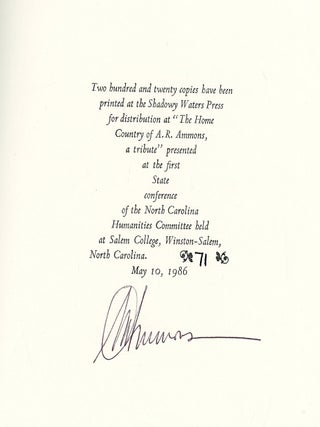 Two hundred and twenty copies have been
printed at the Shadowy Waters Press
for distribution at "The Home
Country of A.R. Ammons,
a tribute" presented
at the first
State
conference
of the North Carolina
Humanities Committee held
at Salem College, Winston-Salem,
North Carolina. 71
May 10, 1986
Ammons